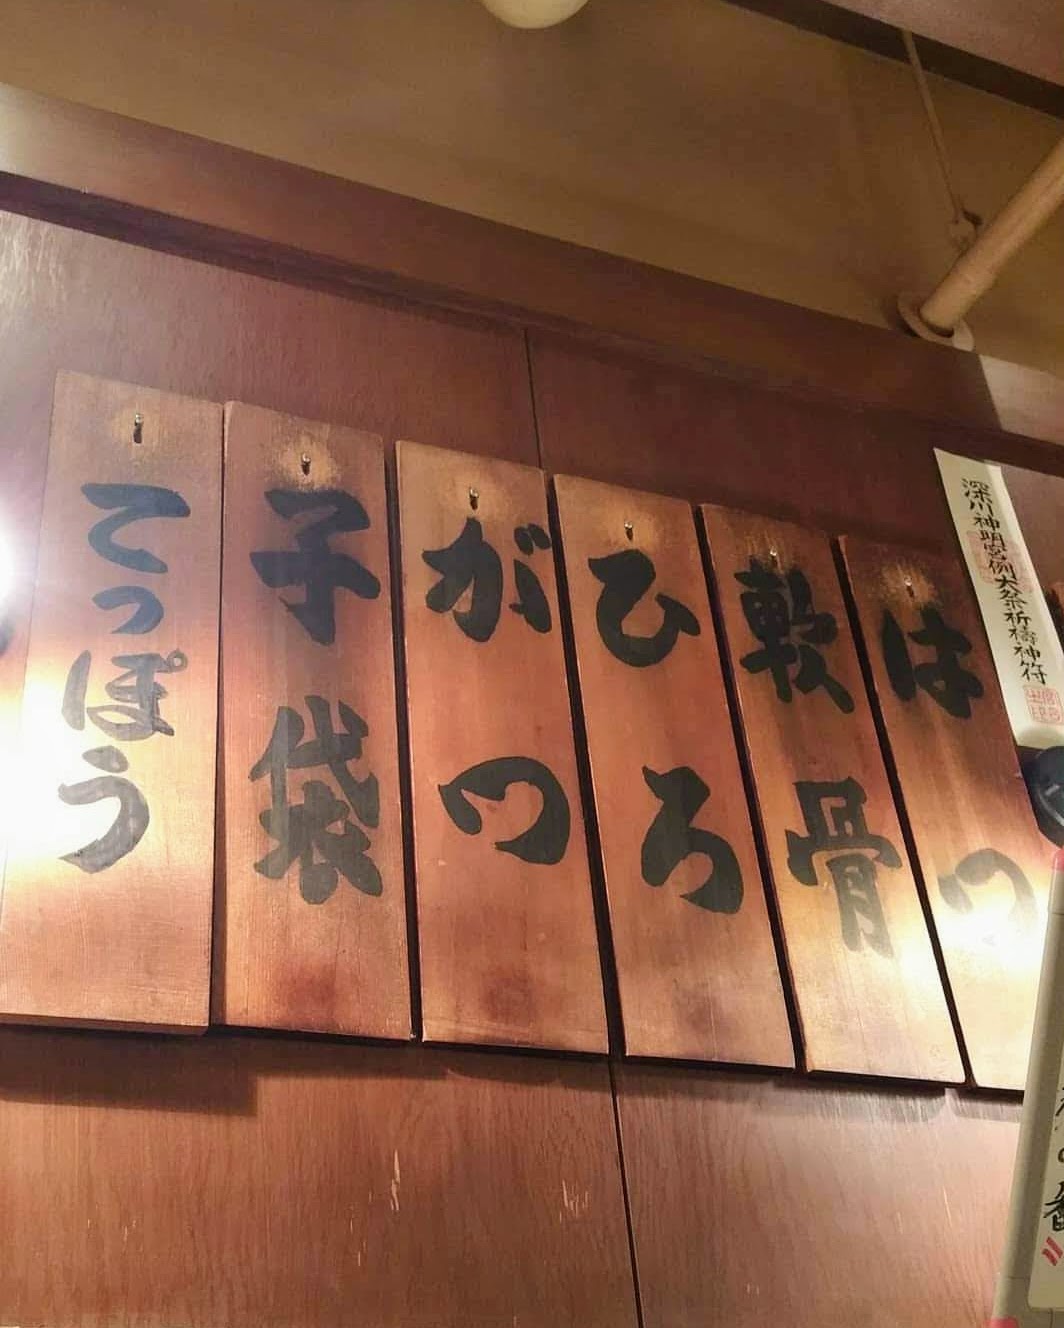 深川神明宮例大祭祈祷神符
はつ
軟骨
ひろ
がつ
子袋
てっぽう